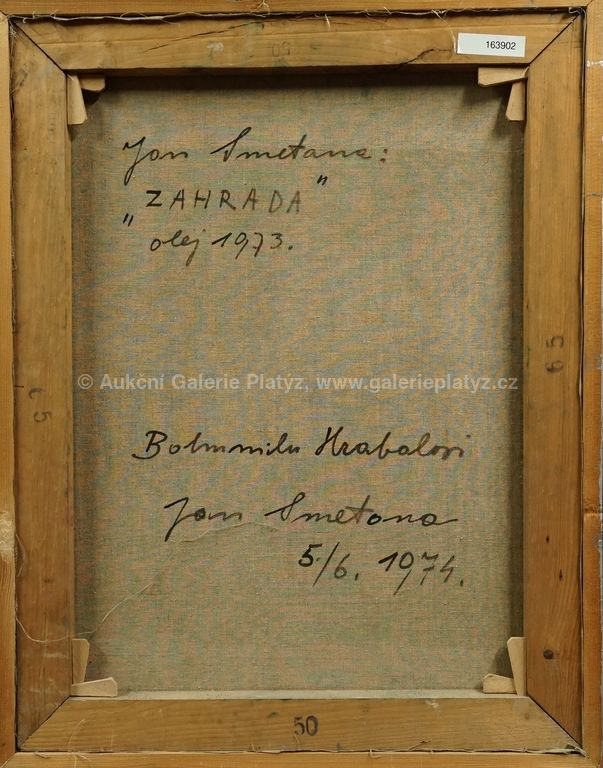 50
163902
Jan Smetana:
„ZAHRADA"
olej 1973.
65
65
© Aukční Galerie Platýz, www.galerieplatyz.cz
Bohumilu Hrabalovi
Jan Smetana
5/6. 1974.
50